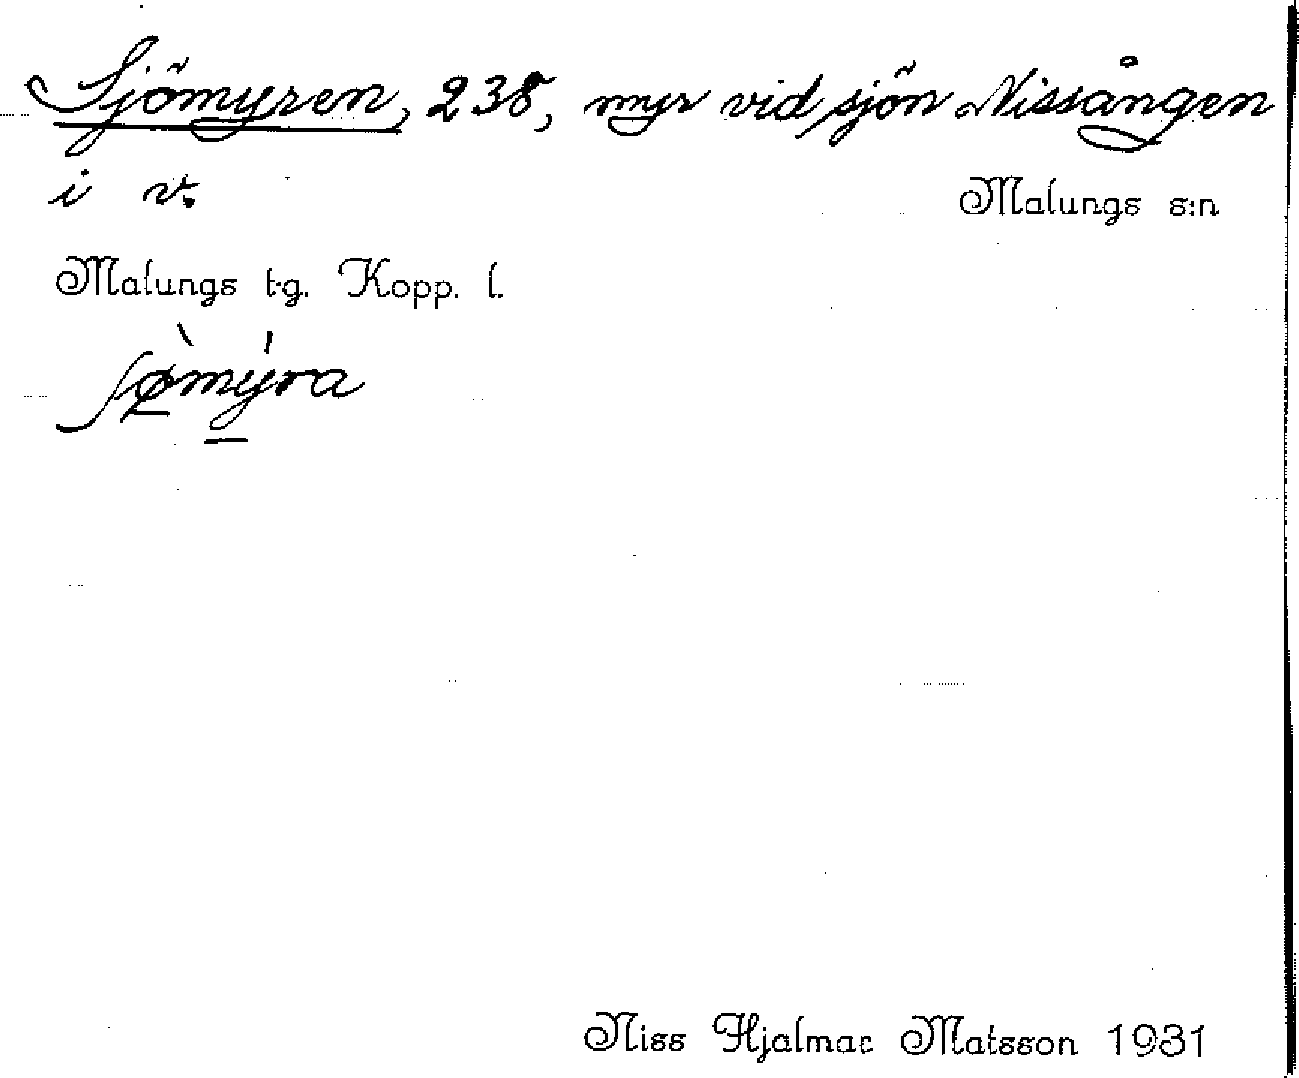 Sjömyren, 238, myr vid sjön Nissången
i v.
Malungs s:n
Malungs tg. Kopp. l.
ʃø̀mýra
Niss Hjalmar Matsson 1931